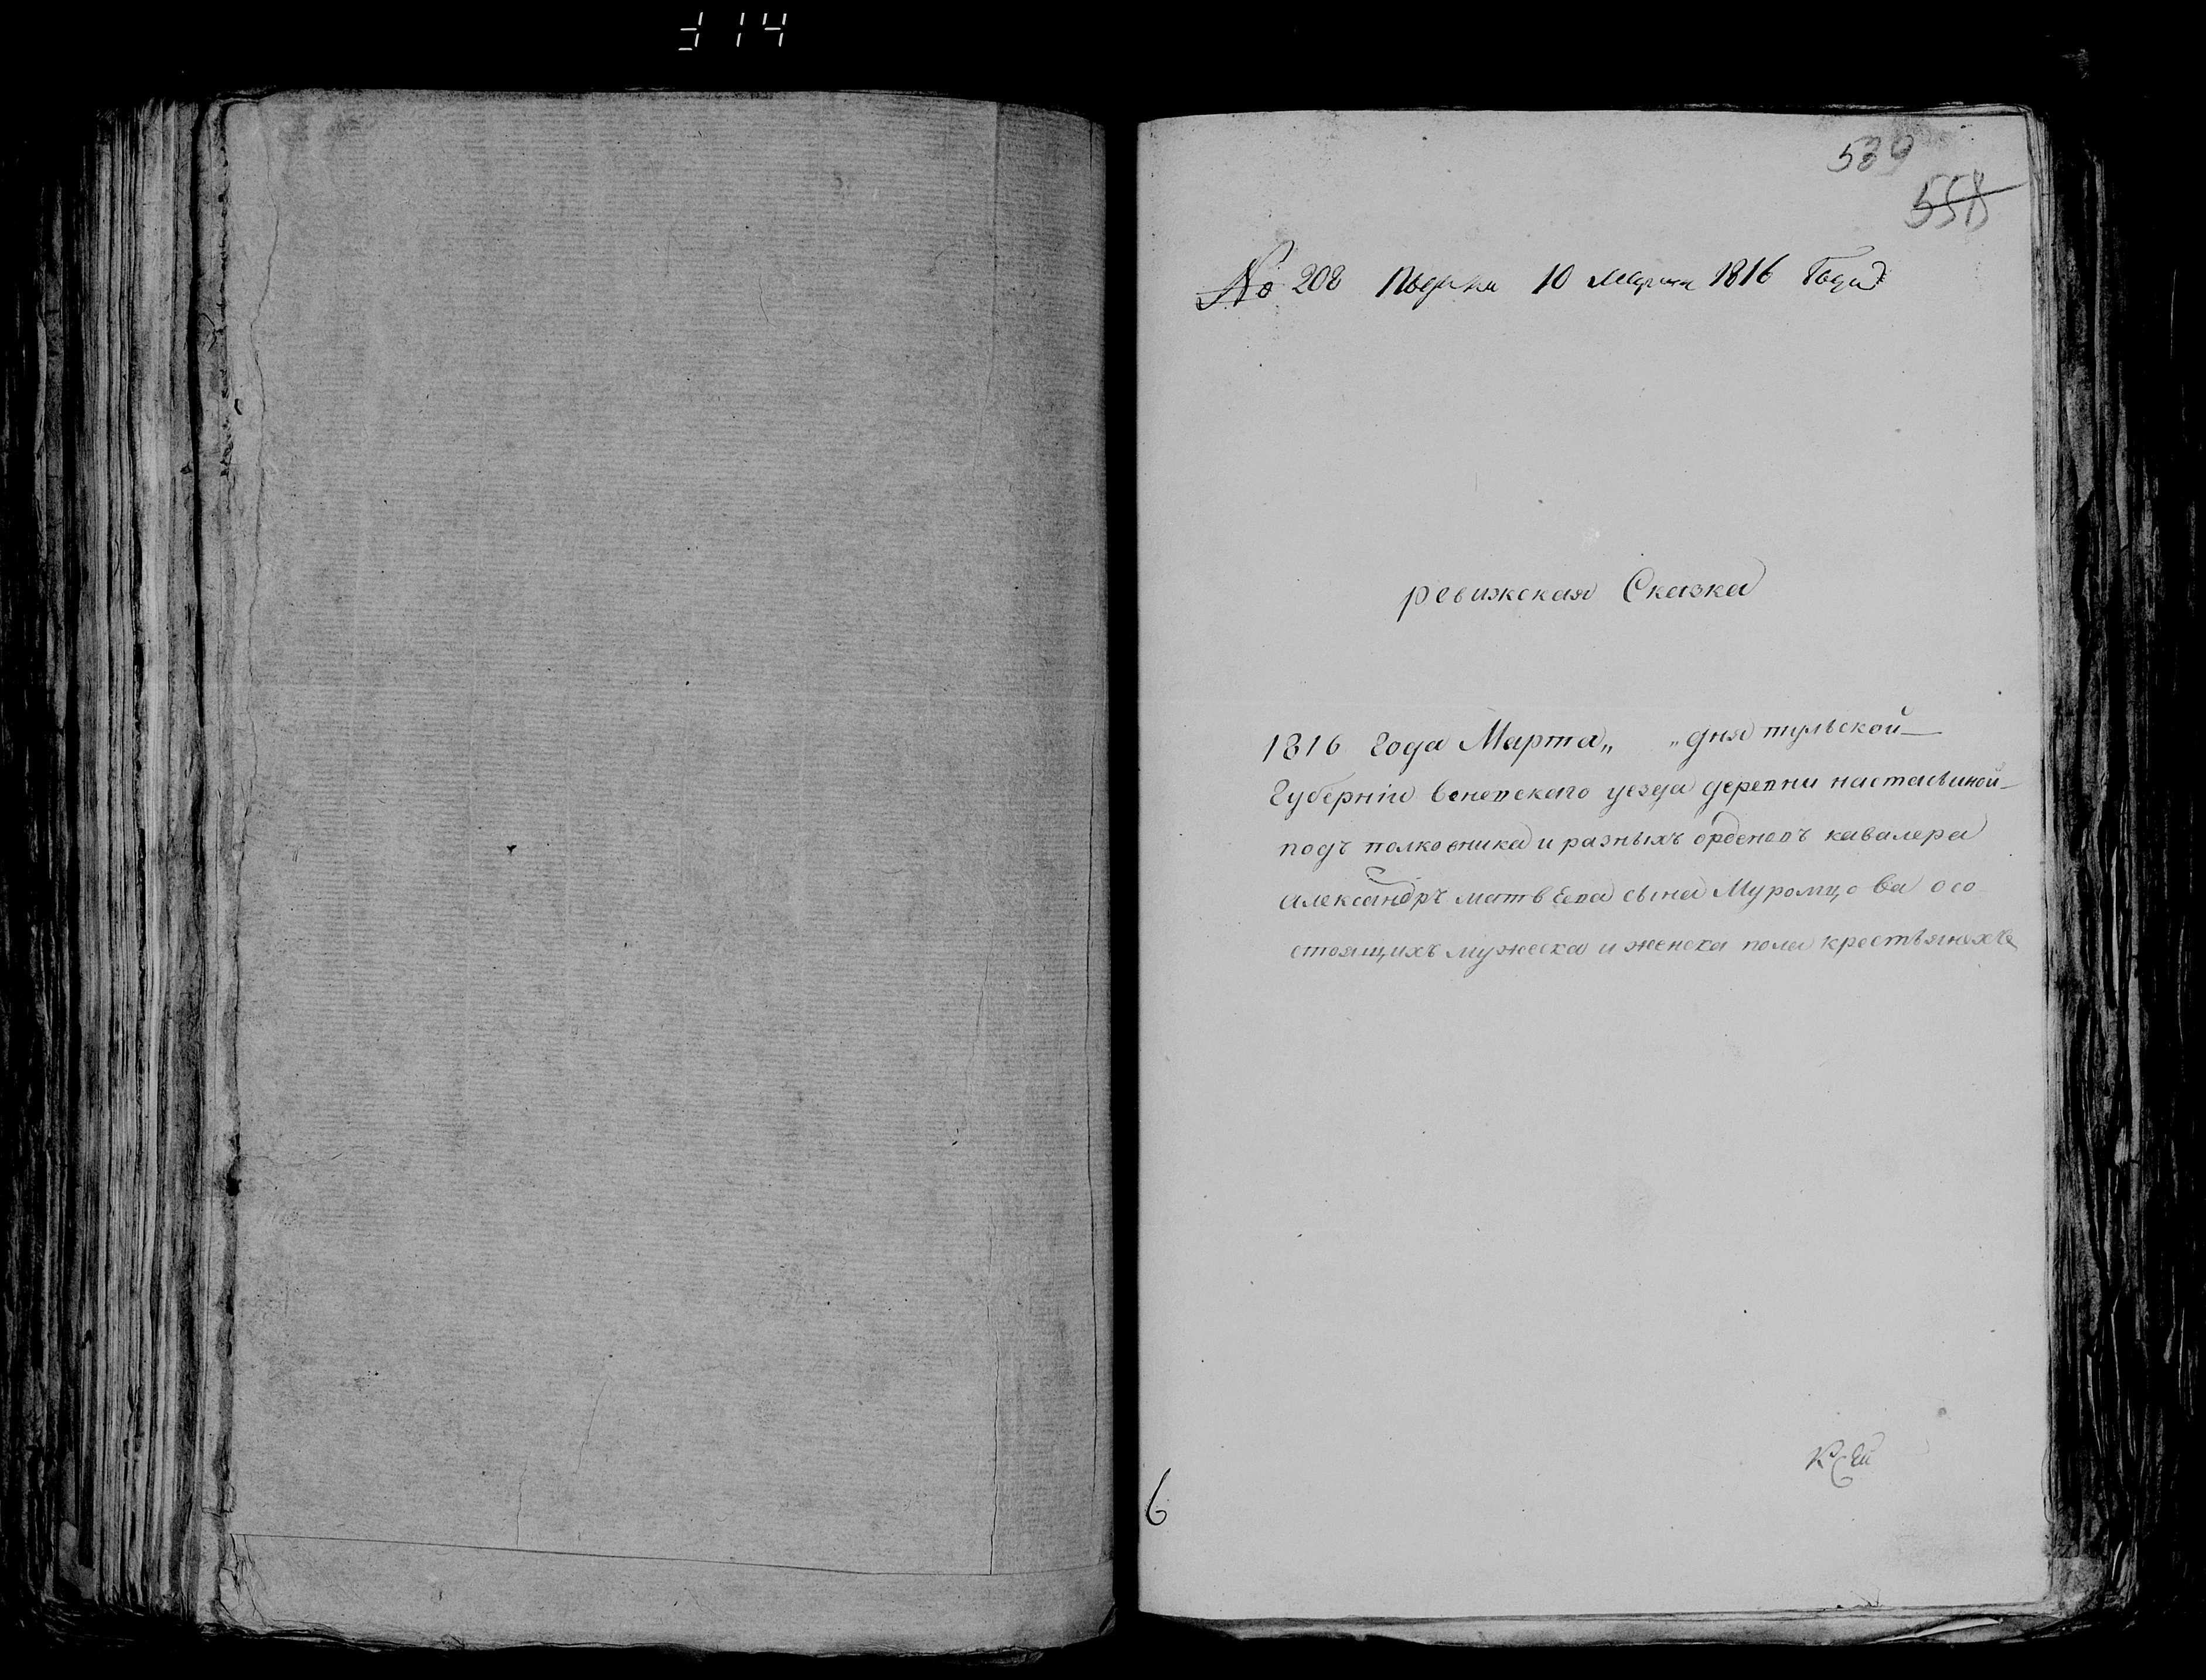 314
539
558
No 208 Подана 10 марта 1816 Года
ревижская Сказка
1816 Года Марта „ „ дня тульской
Губерніи веневскаго уезда деревни настасьиной
подъ полковника и разныхъ орденовъ кавалера
александръ матвеева сына Муромцова осо
стоящихъ мужеска и женска пола крестьянехъ
6